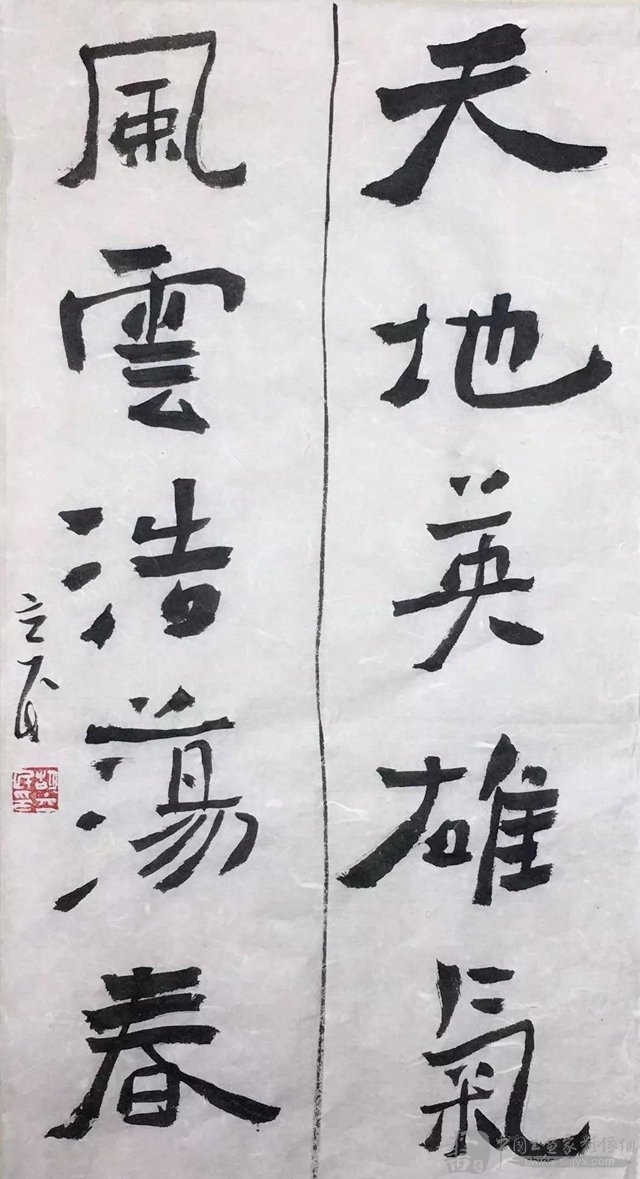 天地英雄氣
風雲浩蕩春
立民
中国书画家影像網